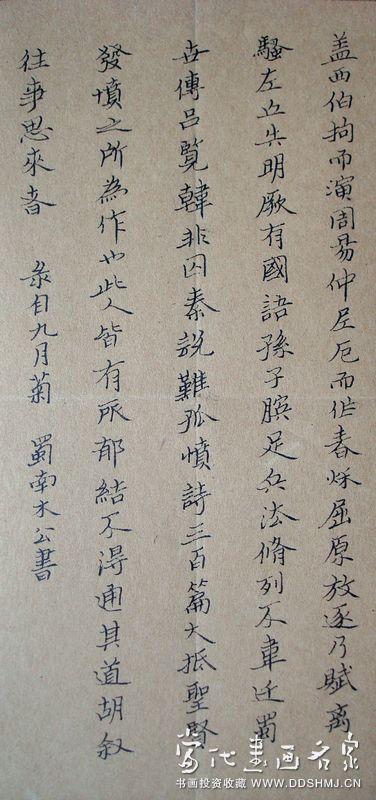 盖西伯拘而演周易仲尼厄而作春秋屈原放逐乃賦离
騷左丘失明厥有國語孫子臏足兵法脩列不韋迁蜀
世傳吕覽韓非囚秦説難孤憤詩三百篇大抵聖賢
發憤之所為作也此人皆有所郁結不得通其道胡叙
往事思來者 录自九月菊 蜀南木公書
當代書画名家
书画投资收藏 WWW.DDSHMJ.CN